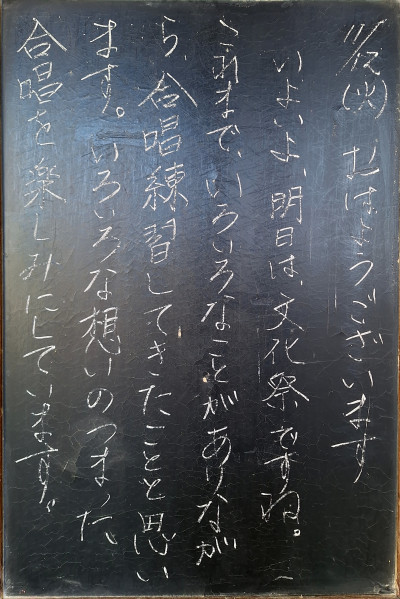 11/12(火) おはようございます
いよいよ、明日は、文化祭ですね。
これまで、いろいろなことがありなが
ら、合唱練習してきたことと思い
ます。いろいろな想いのつまった、
合唱を楽しみにしています。